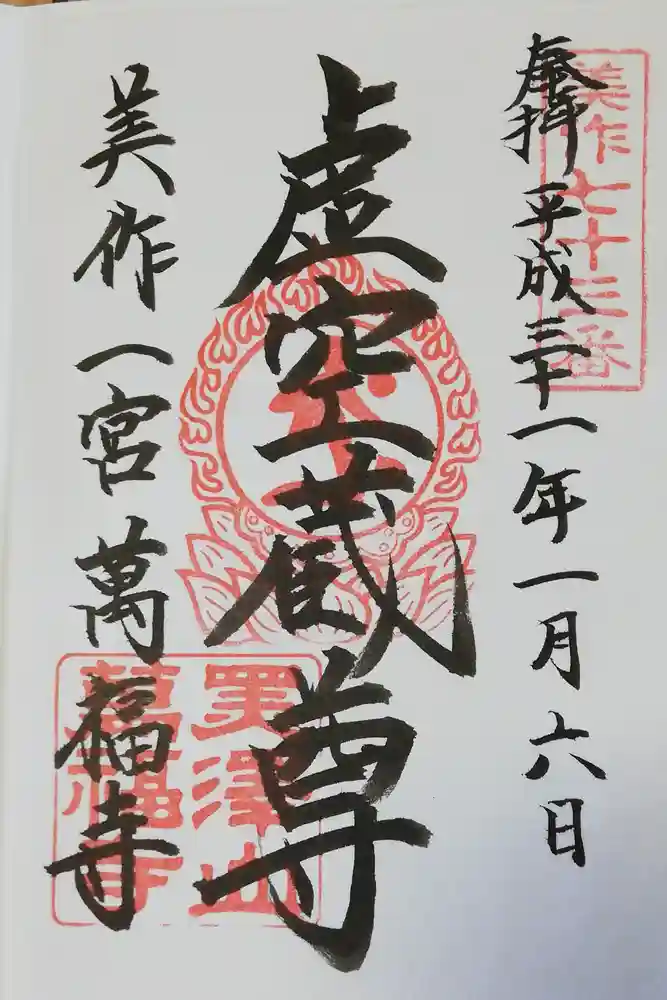 美作七十三番
奉拝 平成三十一年一月六日
虚空蔵尊
美作一宮萬福寺
黒澤山
萬福寺